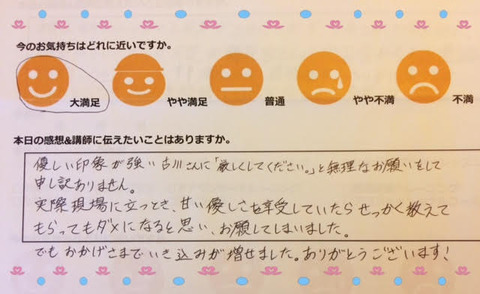 今のお気持ちはどれに近いですか。
大満足 やや満足 普通 やや不満 不満
本日の感想&講師に伝えたいことはありますか。
優しい印象が強い古川さんに「厳しくしてください。」と無理なお願いをして
申し訳ありません。
実際現場に立つとき、甘い優しさを享受していたらせっかく教えて
もらってもダメになると思い、お願してしまいました。
でもおかげさまでいき込みが増せました。ありがとうございます!